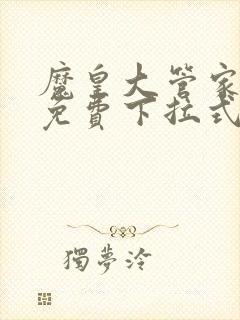 魔皇大管家
免費下拉式
獨夢泠